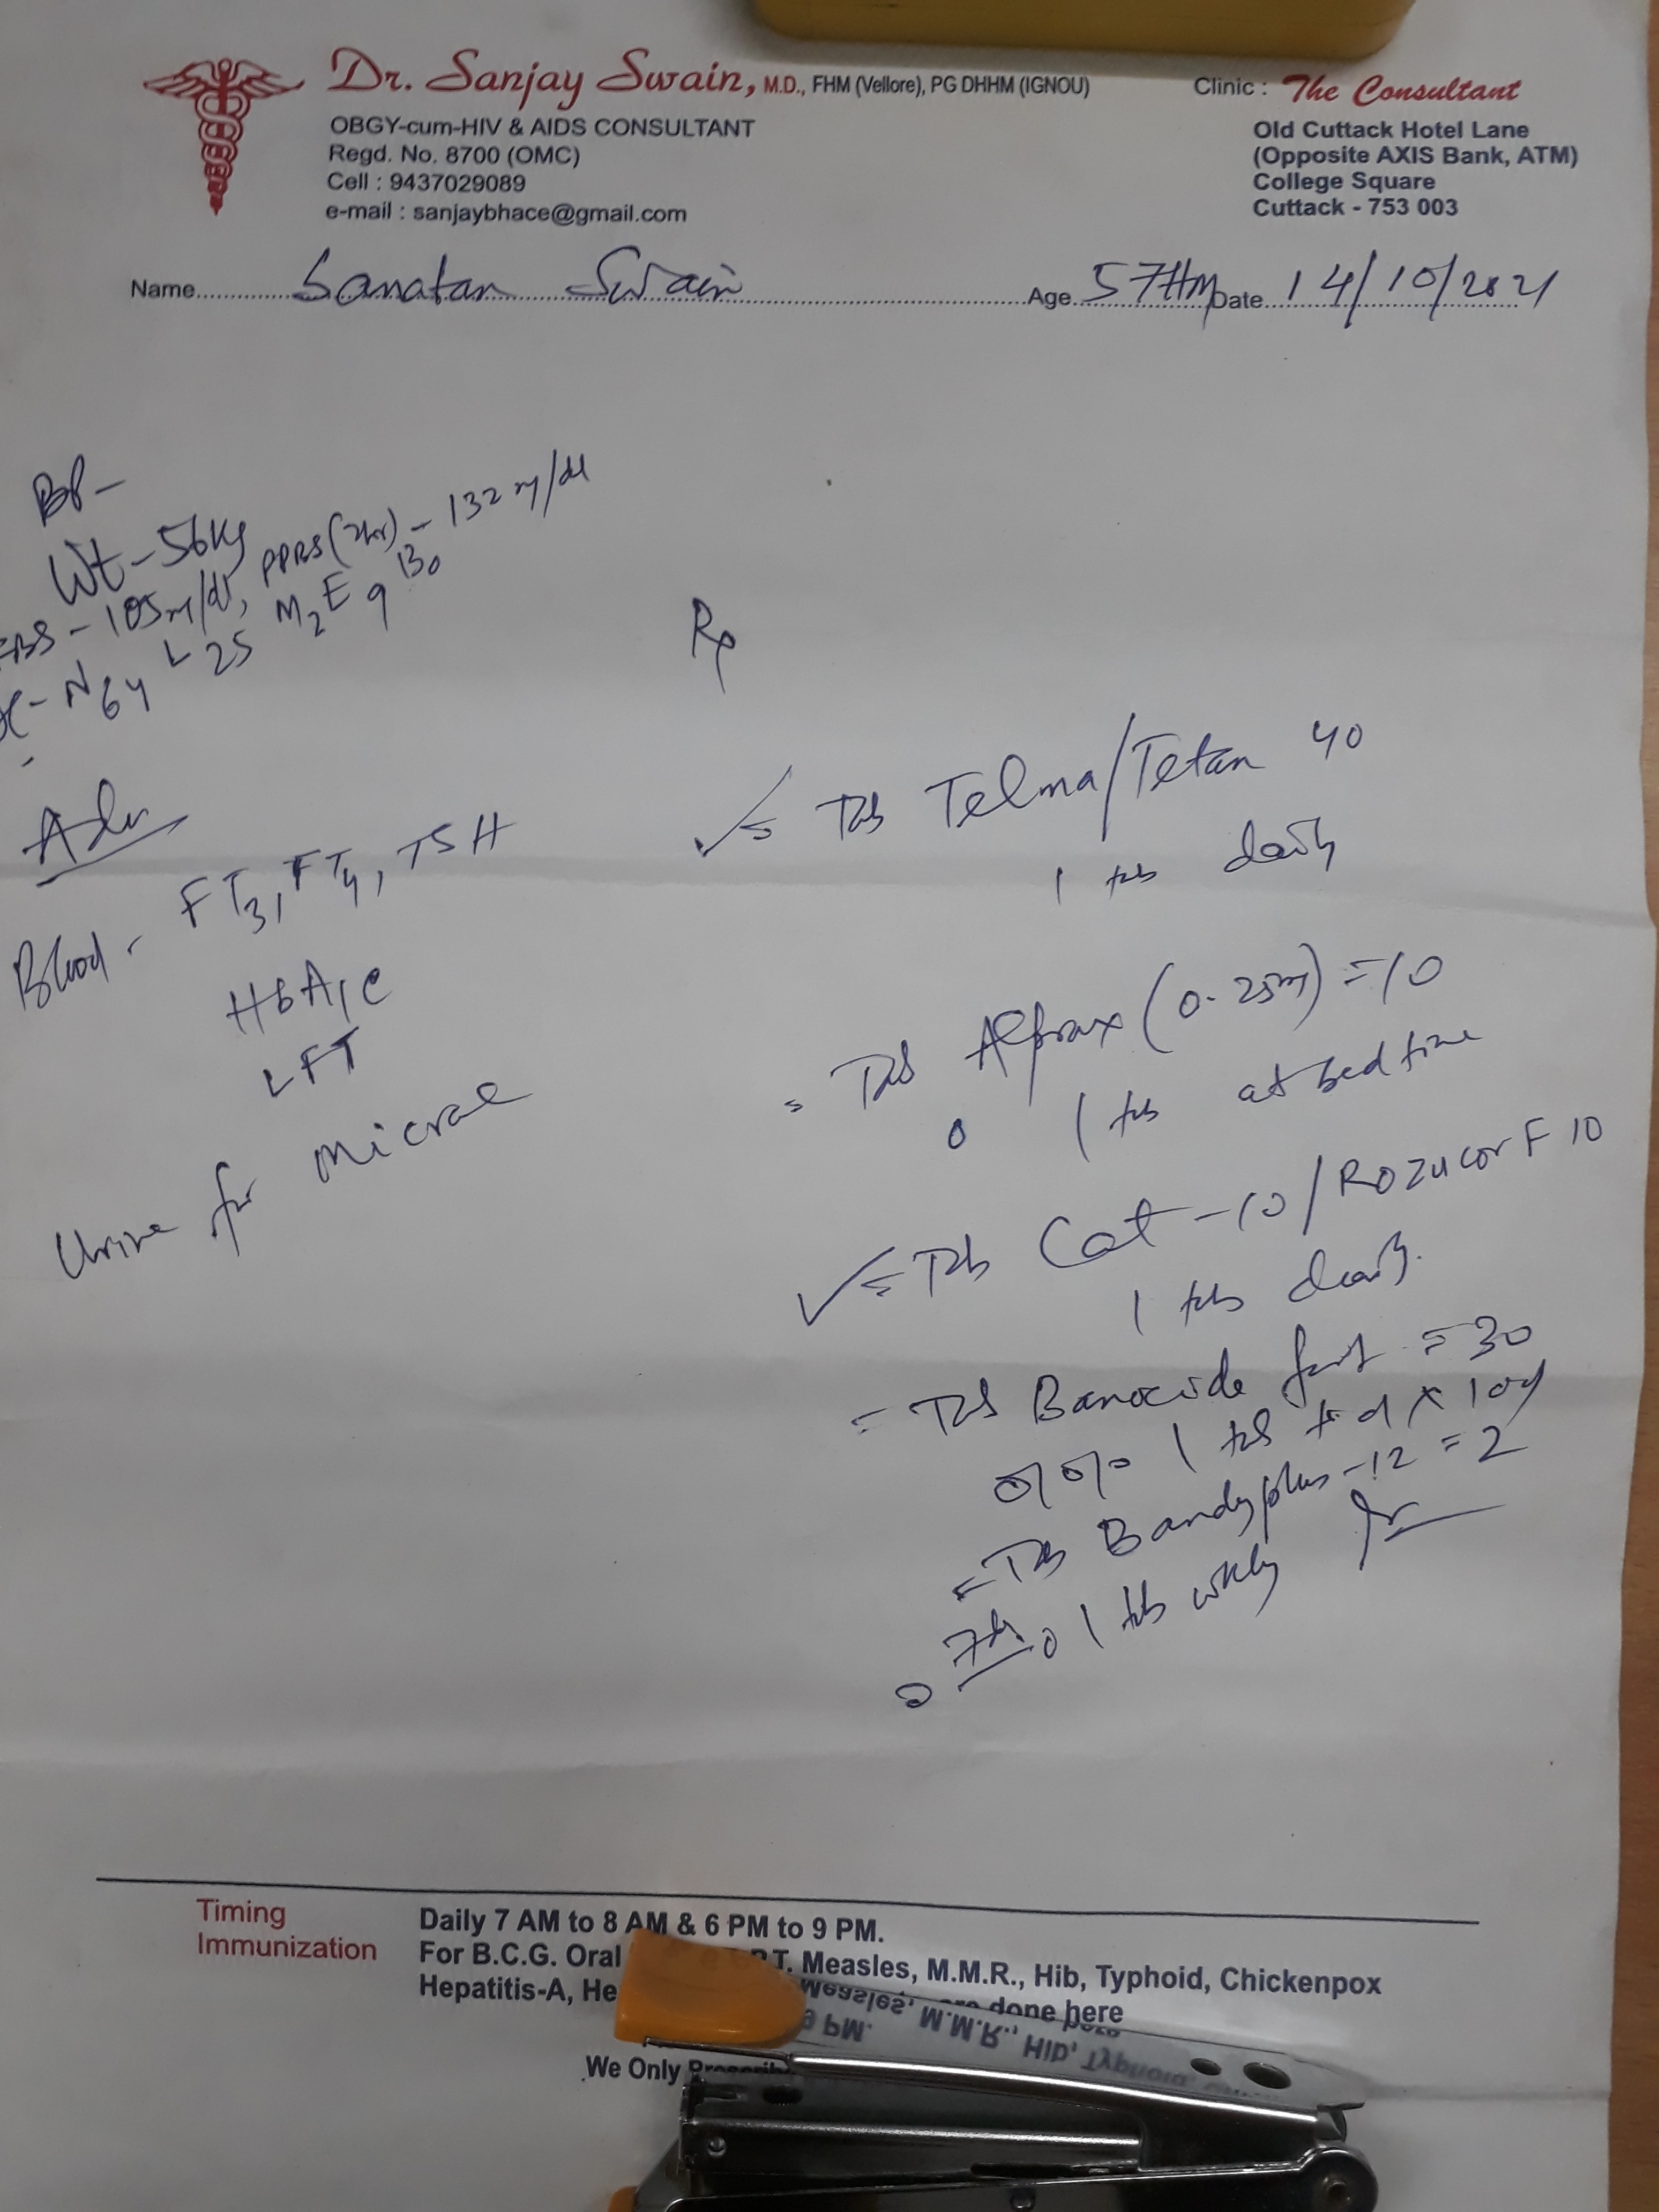 Dr. Sanjay Swain, M.D., FHM (Vellore), PG DHHM (IGNOU)
OBGY-cum-HIV & AIDS CONSULTANT
Regd. No. 8700 (OMC)
Cell : 9437029089
e-mail : sanjaybhace@gmail.com
Clinic : The Consultant
Old Cuttack Hotel Lane
(Opposite AXIS Bank, ATM)
College Square
Cuttack - 753 003
Name Sanatan Swain Age 57 Date 14/10/2021
BP -
Wt - 56kg
FBS - 105 m/dl, PPBS (2hr) - 132 m/dl
DC - N64 L25 M2 E9 B0
Adv
Blood - FT3, FT4, TSH
HbA1c
LFT
Urine for micral
Rx
= Tab Telma/Tetan 40
1 tab daily
= Tab Alprax (0.25m) = 10
0 1 tab at bed time
= Tab Cat-10/Rozucor F 10
1 tab daily
= Tab Banocide fort = 30
1 tab td x 10d
= Tab Bandyplus-12 = 2
1 tab wkly
Timing Daily 7 AM to 8 AM & 6 PM to 9 PM.
Immunization For B.C.G. Oral T. Measles, M.M.R., Hib, Typhoid, Chickenpox
Hepatitis-A, done here
We Only